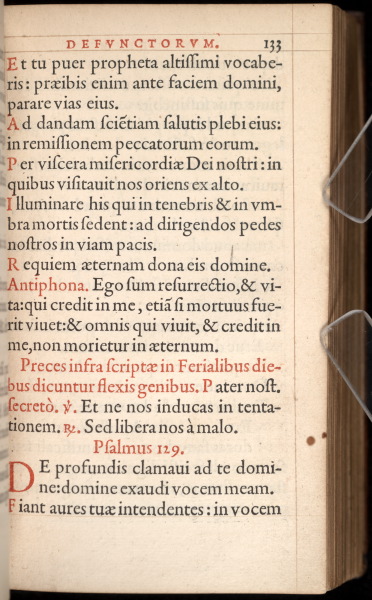 DEFVNCTORVM. 133
Et tu puer propheta altiſſimi vocabe-
ris: præibis enim ante faciem domini,
parare vias eius.
Ad dandam ſciẽtiam ſalutis plebi eius:
in remiſſionem peccatorum eorum.
Per viſcera miſericordiæ Dei noſtri: in
quibus viſitauit nos oriens ex alto.
Illuminare his qui in tenebris & in vm-
bra mortis ſedent: ad dirigendos pedes
noſtros in viam pacis.
Requiem æternam dona eis domine.
Antiphona. Ego ſum reſurrectio, & vi-
ta: qui credit in me, etiã ſi mortuus fue-
rit viuet: & omnis qui viuit, & credit in
me, non morietur in æternum.
Preces infra ſcriptæ in Ferialibus die-
bus dicuntur flexis genibus. Pater noſt.
ſecretò. ℣. Et ne nos inducas in tenta-
tionem. ℟. Sed libera nos à malo.
Pſalmus 129.
DE profundis clamaui ad te domi-
ne: domine exaudi vocem meam.
Fiant aures tuæ intendentes: in vocem